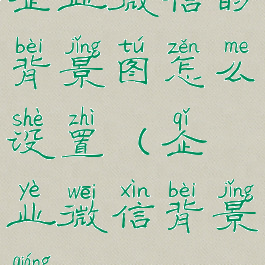 企业微信的
bèi jǐng tú zěn me
背景图怎么
shè zhì qǐ
设置（企
yè wēi xìn bèi jǐng
业微信背景
qiáng